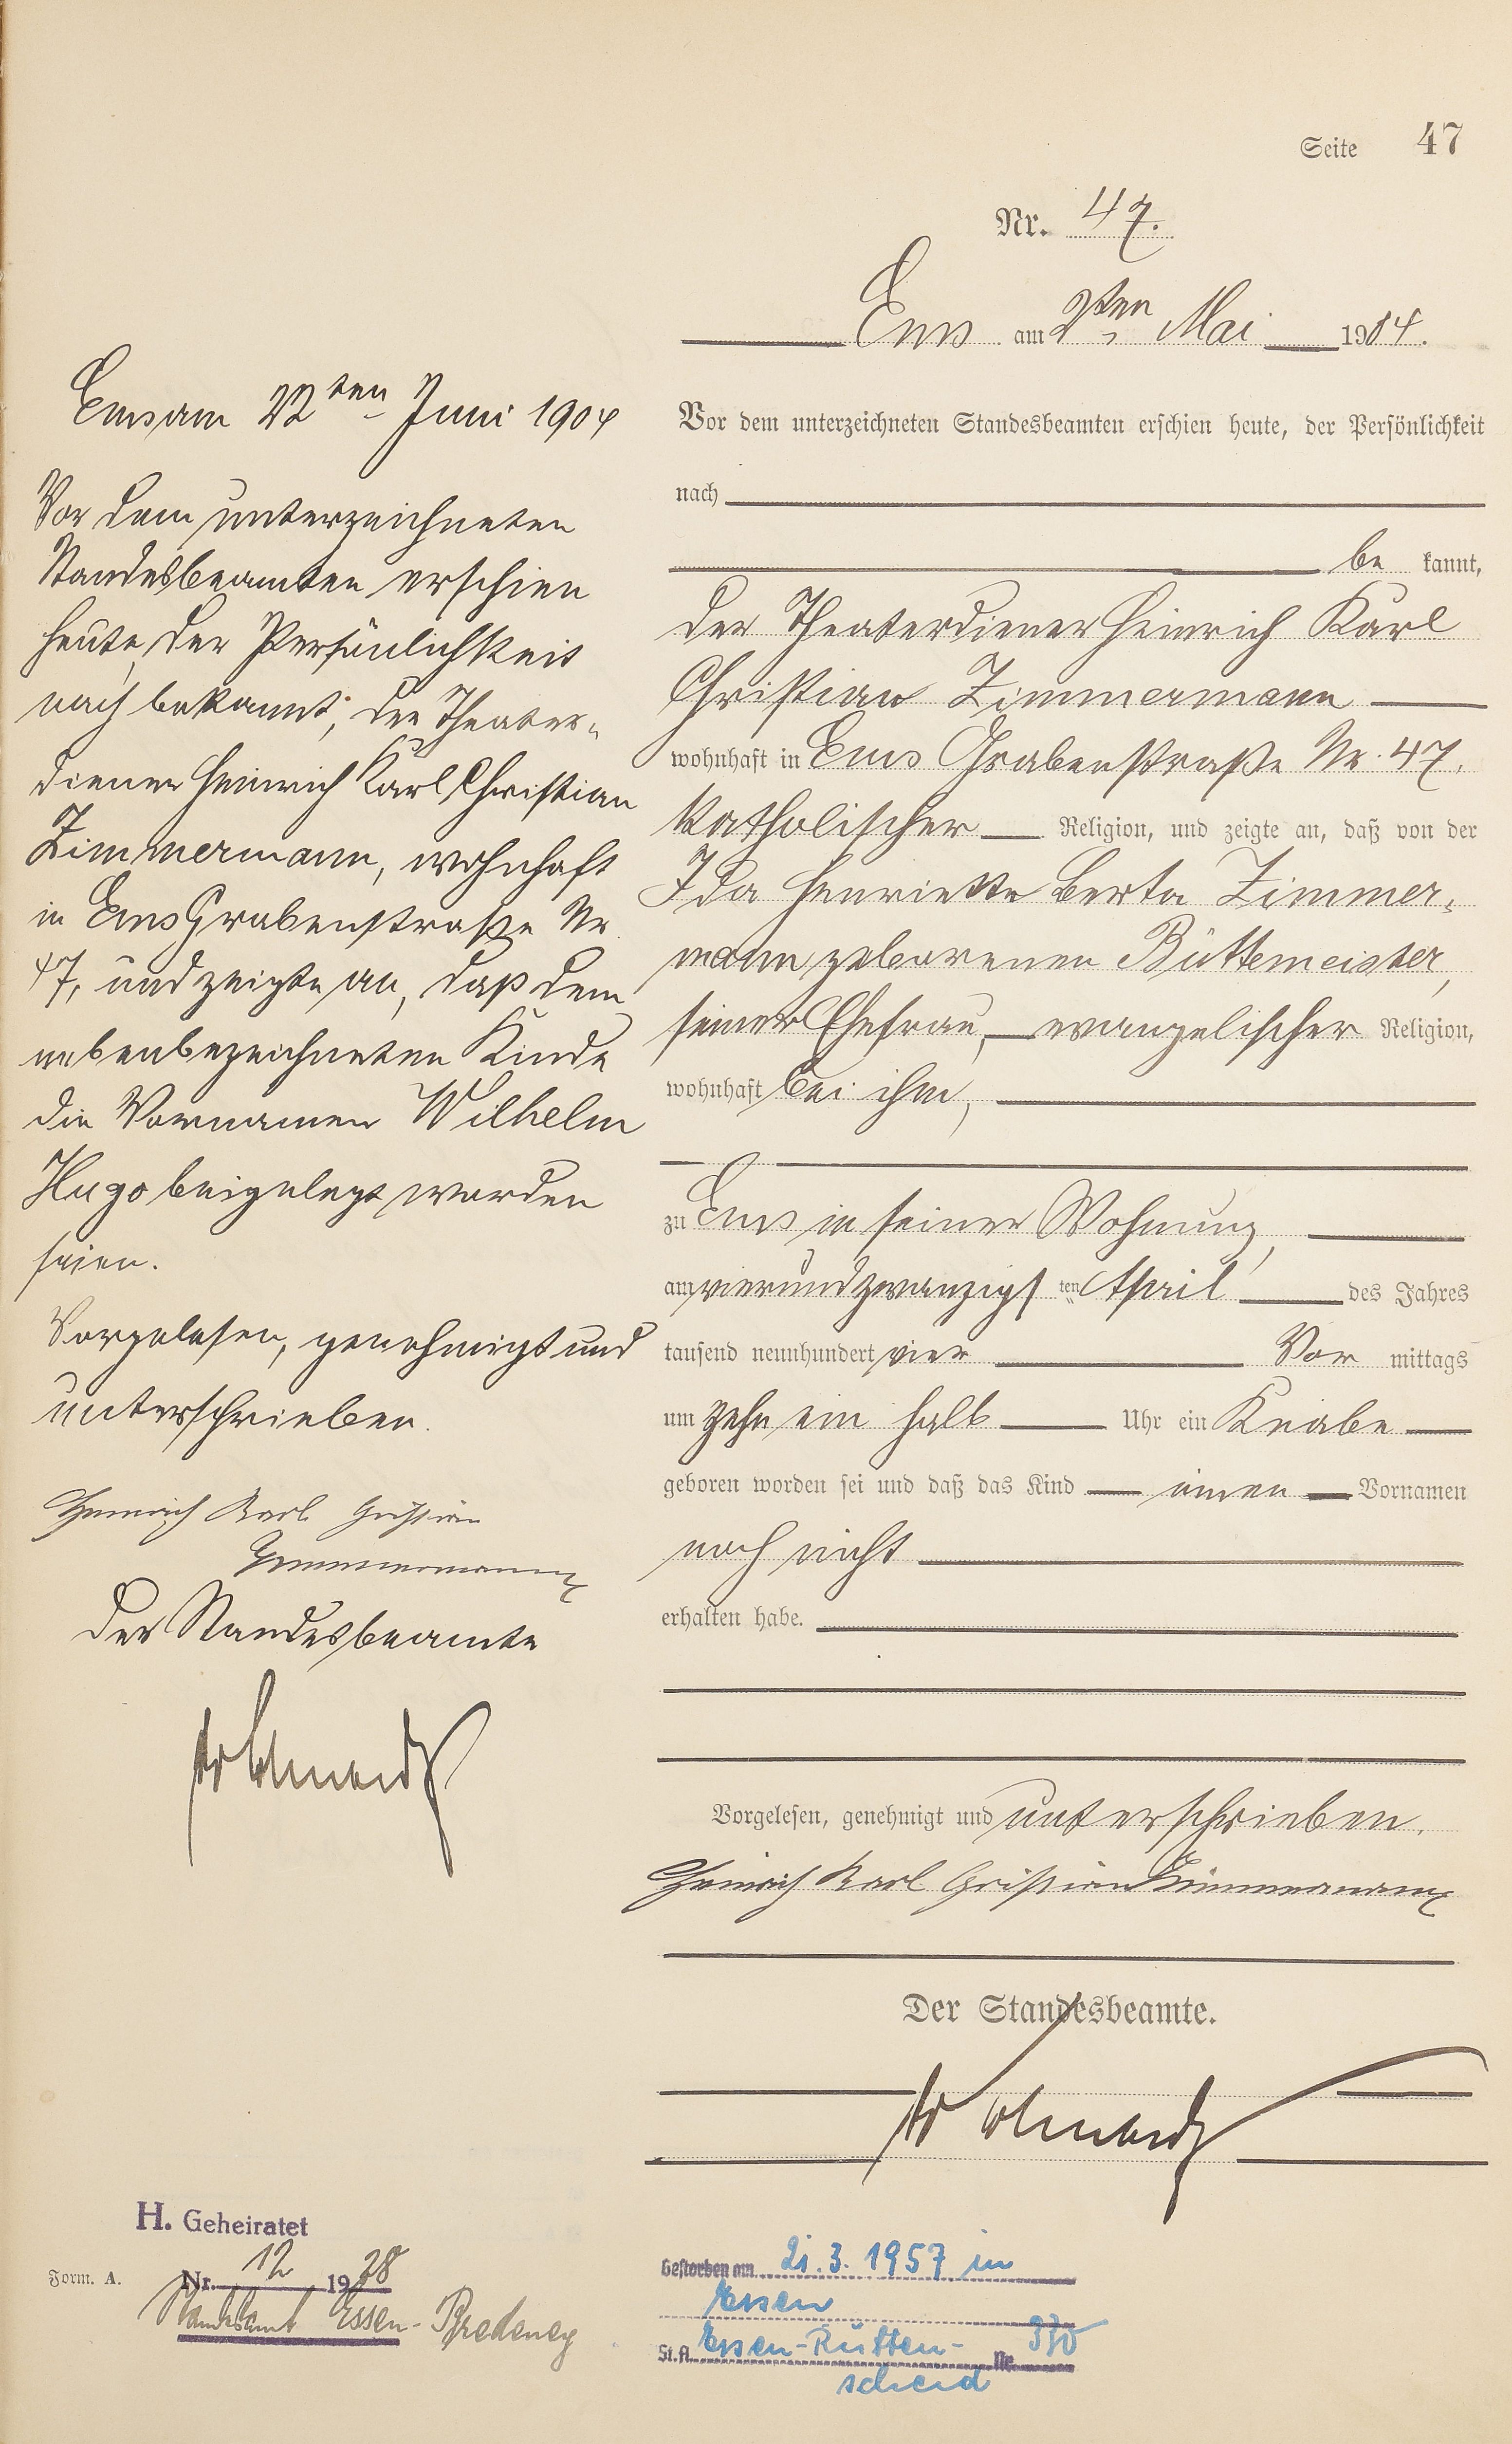 Seite 47
Nr. 47.
Ems am 2ten Mai 1904.
Vor dem unterzeichneten Standesbeamten erschien heute, der Persönlichkeit
nach
be kannt,
der Theaterdiener Heinrich Karl
Christian Zimmermann
wohnhaft in Ems Grabenstraße Nr. 47,
katholischer Religion, und zeigte an, daß von der
Ida Henriette Berta Zimmer-
mann geborenen Büttemeister,
seiner Ehefrau, evangelischer Religion,
wohnhaft bei ihm,
zu Ems in seiner Wohnung,
am vierundzwanzigsten April des Jahres
tausend neunhundert vier Vor mittags
um zehn ein halb Uhr ein Knabe
geboren worden sei und daß das Kind einen Vornamen
noch nicht
erhalten habe.
Vorgelesen, genehmigt und unterschrieben.
Heinrich Karl Christian Zimmermann
Der Standesbeamte.
Ems am 22ten Juni 1904
Vor dem unterzeichneten
Standesbeamten erschien
heute, der Persönlichkeit
nach bekannt, der Theater-
diener Heinrich Karl Christian
Zimmermann, wohnhaft
in Ems Grabenstraße Nr.
47, und zeigte an, daß dem
nebenbezeichneten Kinde
die Vornamen Wilhelm
Hugo beigelegt worden
seien.
Vorgelesen, genehmigt und
unterschrieben.
Heinrich Karl Christian
Zimmermann
Der Standesbeamte
H. Geheiratet
Form. A. Nr. 12 1928
Standesamt Essen-Bredeney
Gestorben am 21.3.1957 in
Essen
St.A. Essen-Rütten- Nr. 370
scheid